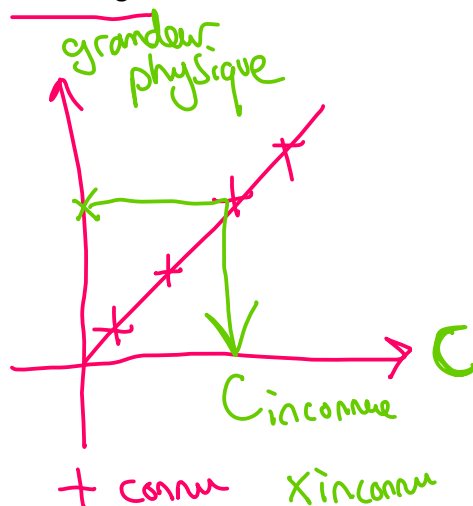 grandeur
physique
C
Cinconnue
+ connu xinconnu